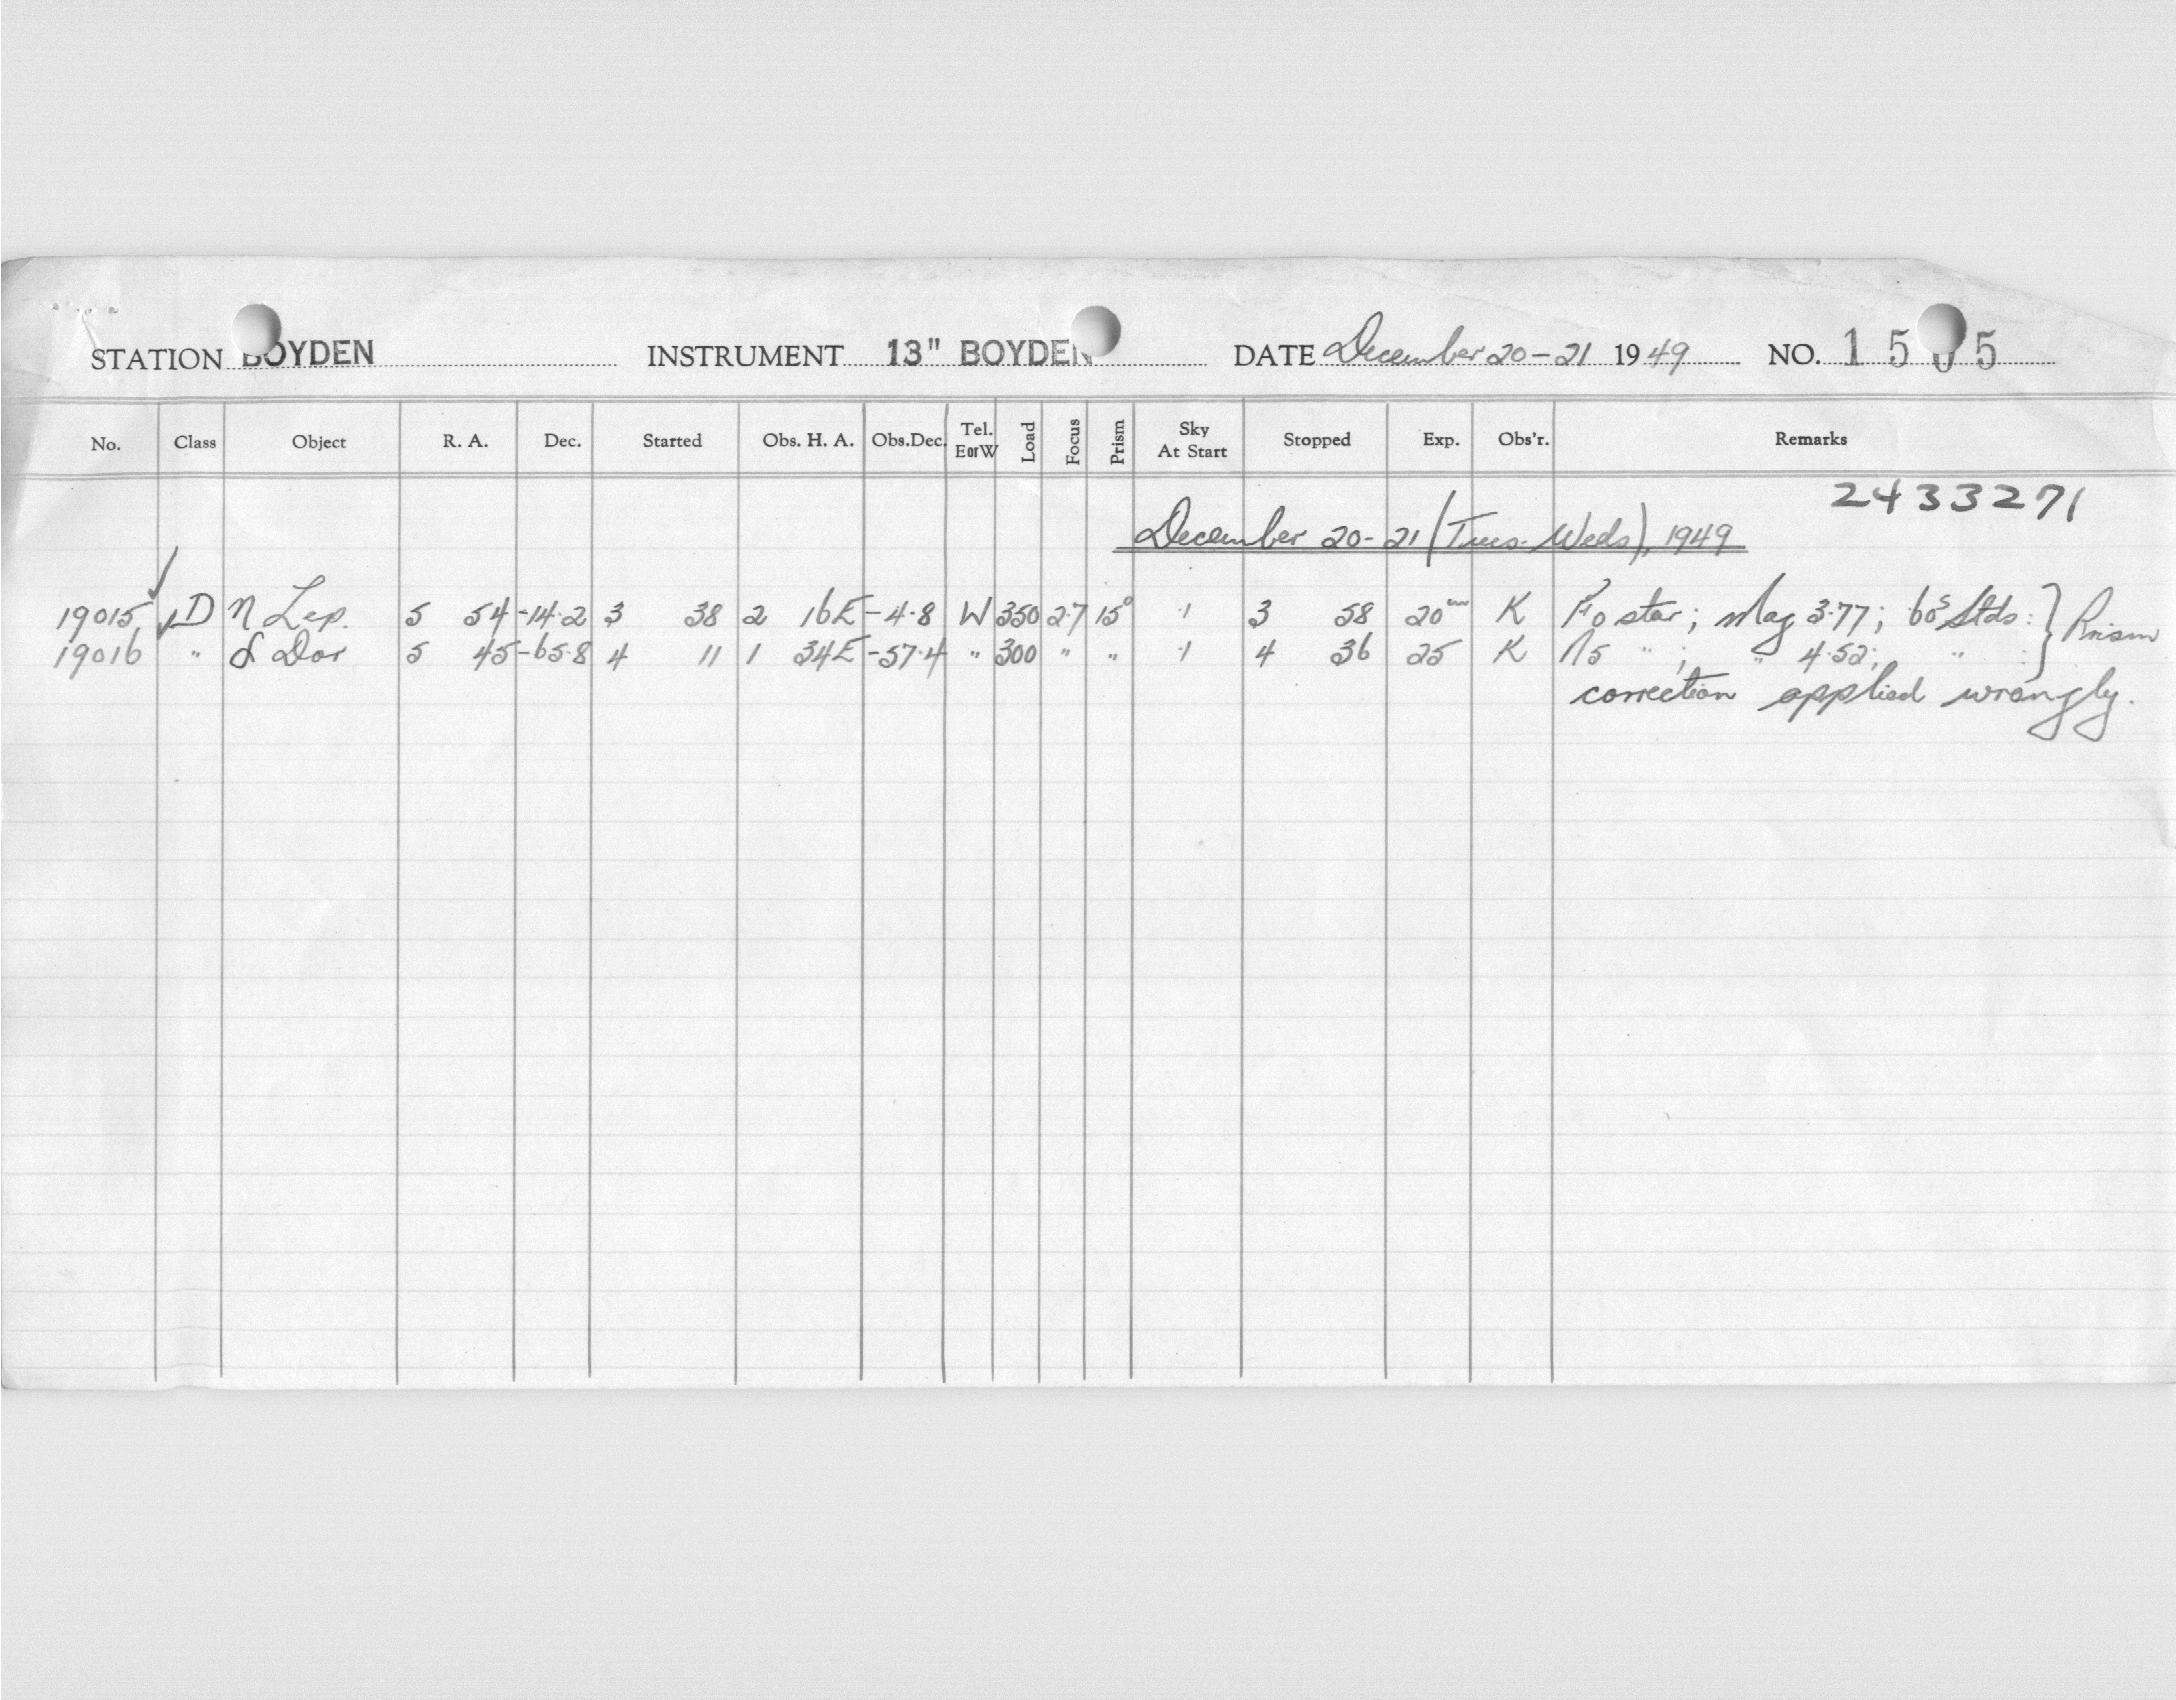 STATION BOYDEN INSTRUMENT 13" BOYDEN DATE December 20-21 1949 NO. 1505
No. Class Object R. A. Dec. Started Obs. H. A. Obs.Dec. Tel. EorW Load Focus Prism Sky At Start Stopped Exp. Obs'r. Remarks
2433271
December 20-21 (Tues-Weds), 1949
19015 D η Lep. 5 54 -14.2 3 38 2 16E -4.8 W 350 2.7 15° .1 3 58 20m K F0 star; Mag 3.77; 60s Stds: } Prism
19016 " δ Dor 5 45 -65.8 4 11 1 34E -57.4 " 300 " " .1 4 36 25 K A5 " ; " 4.52; " :
correction applied wrongly.